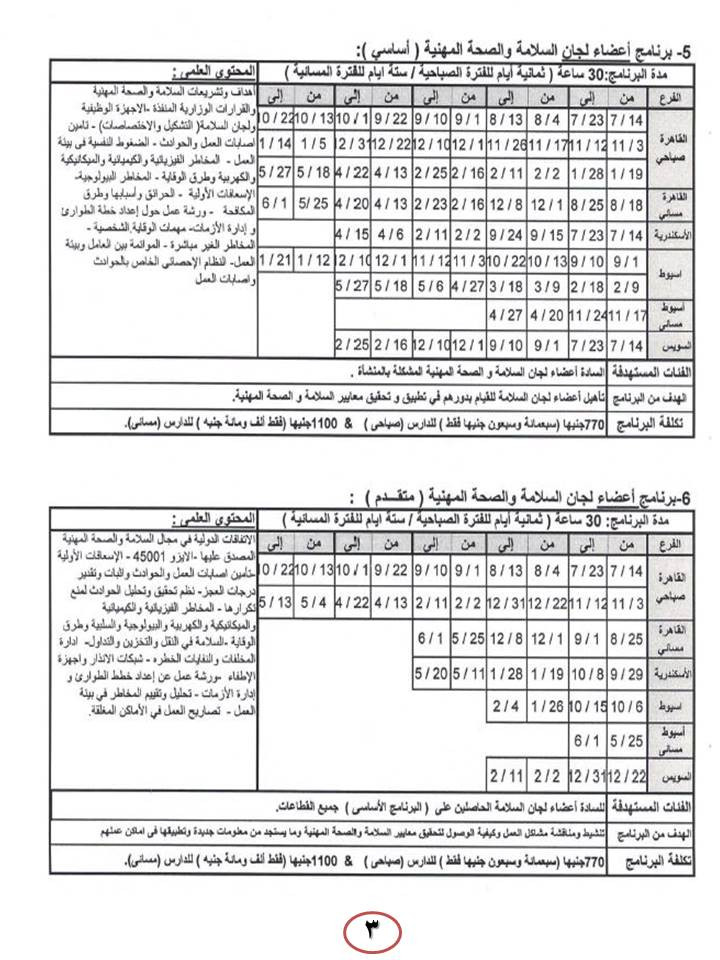 5- برنامج أعضاء لجان السلامة والصحة المهنية ( أساسي ):
مدة البرنامج: 30 ساعة ( ثمانية أيام للفترة الصباحية / ستة ايام للفترة المسائية )
الفرع من إلى من إلى من إلى من إلى من إلى
القاهرة صباحي
7/14 7/23 8/4 8/13 9/1 9/10 9/22 10/1 10/13 10/22
11/3 11/12 11/17 11/26 12/1 12/10 12/22 12/31 1/5 1/14
1/19 1/28 2/2 2/11 2/16 2/25 4/13 4/22 5/18 5/27
القاهرة مسائي
8/18 8/25 12/1 12/8 2/16 2/23 4/13 4/20 5/25 6/1
الأسكندرية 7/14 7/23 9/15 9/24 2/2 2/11 4/6 4/15
اسيوط
9/1 9/10 10/13 10/22 11/3 11/12 12/1 12/10 1/12 1/21
2/9 2/18 3/9 3/18 4/27 5/6 5/18 5/27
أسيوط مسائى
11/17 11/24 4/20 4/27
السويس 7/14 7/23 9/1 9/10 12/1 12/10 2/16 2/25
المحتوي العلمى :
أهداف وتشريعات السلامة والصحة المهنية
والقرارات الوزارية المنفذة -الاجهزة الوظيفية
ولجان السلامة( التشكيل والاختصاصات) - تامين
اصابات العمل والحوادث - الضغوط النفسية فى بيئة
العمل - المخاطر الفيزيائية والكيميائية والميكانيكية
والكهربية وطرق الوقاية - المخاطر البيولوجية-
الإسعافات الأولية - الحرائق وأسبابها وطرق
المكافحة - ورشة عمل حول إعداد خطة الطوارئ
و إدارة الأزمات- مهمات الوقاية الشخصية -
المخاطر الغير مباشرة - الموائمة بين العامل وبيئة
العمل- النظام الإحصائي الخاص بالحوادث
واصابات العمل
الفئات المستهدفة السادة أعضاء لجان السلامة و الصحة المهنية المشكلة بالمنشأة .
الهدف من البرنامج تأهيل أعضاء لجان السلامة للقيام بدورهم في تطبيق و تحقيق معايير السلامة و الصحة المهنية.
تكلفة البرنامج 770جنيها (سبعمائة وسبعون جنيها فقط ) للدارس (صباحى ) & 1100جنيها (فقط ألف ومائة جنيه ) للدارس (مسائى).
6-برنامج أعضاء لجان السلامة والصحة المهنية ( متقــدم ) :
مدة البرنامج: 30 ساعة ( ثمانية أيام للفترة الصباحية / ستة ايام للفترة المسائية )
الفرع من إلى من إلى من إلى من إلى من إلى
القاهرة صباحي
7/14 7/23 8/4 8/13 9/1 9/10 9/22 10/1 10/13 10/22
11/3 11/12 12/22 12/31 2/2 2/11 4/13 4/22 5/4 5/13
القاهرة مسائى
8/25 9/1 12/1 12/8 5/25 6/1
الأسكندرية 9/29 10/8 1/19 1/28 5/11 5/20
اسيوط 10/6 10/15 1/26 2/4
أسيوط مسائى
5/25 6/1
السويس 12/22 12/31 2/2 2/11
المحتوي العلمى :
الاتفاقات الدولية في مجال السلامة والصحة المهنية
المصدق عليها -الايزو 45001 - الإسعافات الأولية
-تأمين اصابات العمل والحوادث واثبات وتقدير
درجات العجز- نظم تحقيق وتحليل الحوادث لمنع
تكرارها - المخاطر الفيزيائية والكيميائية
والميكانيكية والكهربية والبيولوجية والسلبية وطرق
الوقاية -السلامة في النقل والتخزين والتداول- ادارة
المخلفات والنفايات الخطره - شبكات الانذار واجهزة
الإطفاء -ورشة عمل عن إعداد خطط الطوارئ و
إدارة الأزمات - تحليل وتقييم المخاطر في بيئة
العمل - تصاريح العمل في الأماكن المغلقة.
الفئات المستهدفة للسادة أعضاء لجان السلامة الحاصلين على ( البرنامج الأساسى ) جميع القطاعات.
الهدف من البرنامج تنشيط ومناقشة مشاكل العمل وكيفية الوصول لتحقيق معايير السلامة والصحة المهنية وما يستجد من معلومات جديدة وتطبيقها فى اماكن عملهم
تكلفة البرنامج 770جنيها (سبعمائة وسبعون جنيها فقط ) للدارس (صباحى ) & 1100جنيها (فقط ألف ومائة جنيه ) للدارس (مسائى).
٣